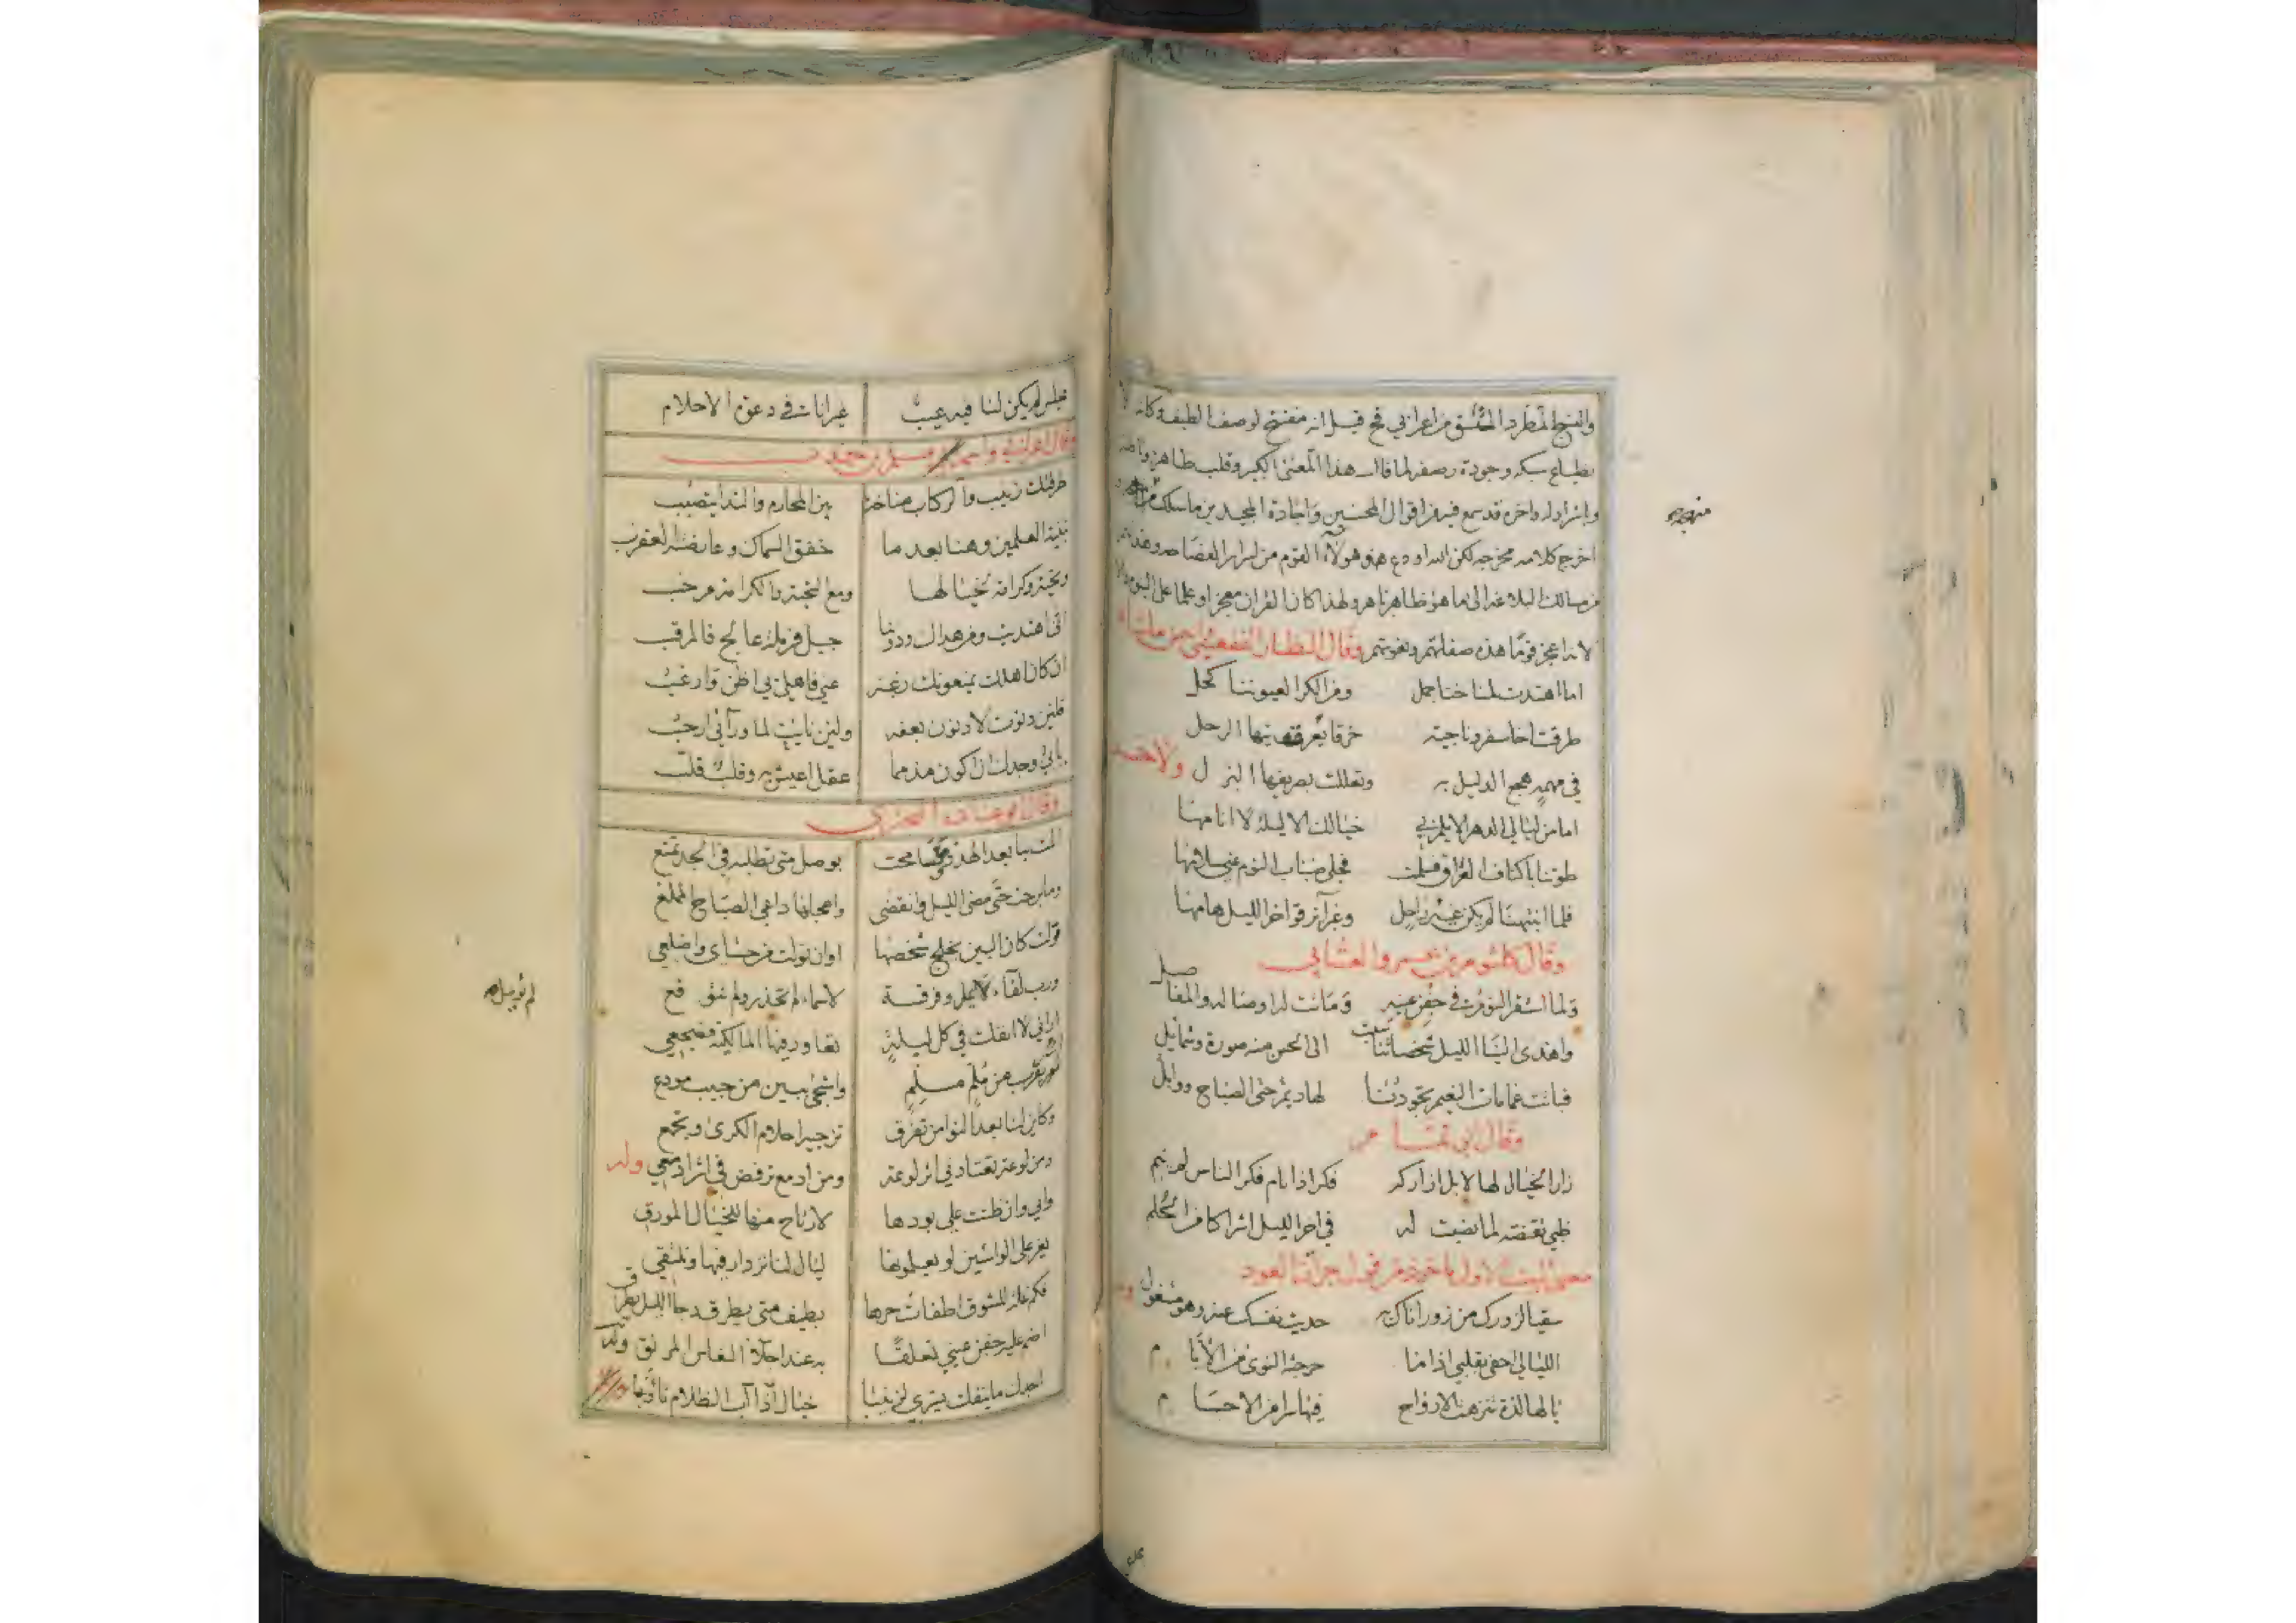 والنسج المطرد المتسق من اعرابي قح قيل انه مفتتح لوصف الطيف وكانه لا
بطباع سبكه وجودة رصفه لما قال هذا المعنى الكبير وقلب ظاهره
واشراوله واخره قد سمع فيه من اقوال المحسنين واجادة المجيدين ما سلك
اخرج كلامه مخرجه لكن الله اودع هؤلاء القوم من اسرار الفصاحة
من مسالك البلاغة الى ما هو ظاهر باهر ولهذا كان القران معجزا وعلما على النبوة
لانه اعجز قوما هذه صفاتهم ونعوتهم وقال النظار الفقعسي
اما اهتدت لمناخنا جمل ومن الكرا لعيوننا كحل
طرقت اخا سفر وناجية خرقا الرحل
في مهمه هجع الدليل به وتعللت بصريفها البزل ولاخر
اما من ليالي الدهر الا يلم بي خيالك الا ليلة لا انامها
طوتنا باكناف العراق فسلمت فجلى ضباب النوم عني سلامها
فلما انتبهنا لم يكن غير راحل وغرانزقوا خرا لليل هامها
وقال كلثوم بن عمرو العتابي
ولما استقر النوم في جفن عينه وماتت له اوصاله والمفاصل
واهدى الينا الليل شخصا الى الحسن منه صورة وشمايل
فباتت غمامات النعيم تجودنا لها ديم حتى الصباح ووابل
وقال ابي تمام
زار الخيال لها لا بل ازاركه فكر اذا نام فكر الناس لم ينم
ظبي تقنصته لما نصبت له في اخر الليل اشراكا من الحلم
معنى البيت الاول ماخوذ من قول جران العود
سقيا لزورك من زور اتاك به حديث نفسك عنه وهو مشغول
الليالي احفى بقلبي اذا ما جرحته النوى من الايام
يا لها لذة تنزهت الارواح فيها سرا من الاجسام
مجلس لم يكن لنا فيه عيب غير انا في دعوة الاحلام
وقال
طرقتك زينب والركاب مناخة بين المحارم والندا يتصبب
بثنية العلمين وهنا بعد ما خفق السماك وعارضته العقرب
وتحية وكرامة لخيالها ومع التحية والكرامة مرحب
انى اهتديت ومن هداك ودوننا جبل فرملة عالج فالمرقب
ان كان اهلك يمنعونك رغبة عني فاهلي بي اظن وارغب
فلئن دنوت لادنون بعفة ولئن نايت لما وراني ارحب
يابى وجدك ان اكون مذمما عقل اعيش به وقلب قلب
وقال ابو عبادة البحتري
المت بنا بعد الهدو فسامحت بوصل متى تطلبه في الجد تمنع
وما برحت حتى مضى الليل وانقضى واعجلها داعي الصباح الملمع
فولت كان البين يخلج شخصها اوان تولت من حشاي واضلعي
ورب لقاء لم يؤمل وفرقة لاسماء لم تحذر ولم تتوقع
اراني لا انفك في كل ليلة تعاودني فيها المالكية مضجعي
اسر بقرب من ملم مسلم واشجى ببين من حبيب مودع
وكاين لنا بعد النوا من تفرق تزجيه احلام الكرى وتجمع
ومن لوعة تعتاد في اثر لوعة ومن ادمع ترفض في اثر ادمعي وله
واني وان ضنت علي بودها لارتاح منها للخيال المورق
يعز على الواشين لو يعلمونها ليال لنا نزدار فيها ونلتقي
فكم غلة للشوق اطفات حرها بطيف متى يطرق دجا الليل يطرق
اضم عليه جفن عيني تعلقا به عند اجلاء النعاس المرنق وله
اجدك ما ينفك يسري لزينبا خيال اذا اب الظلام تاوبا
لم تؤمل